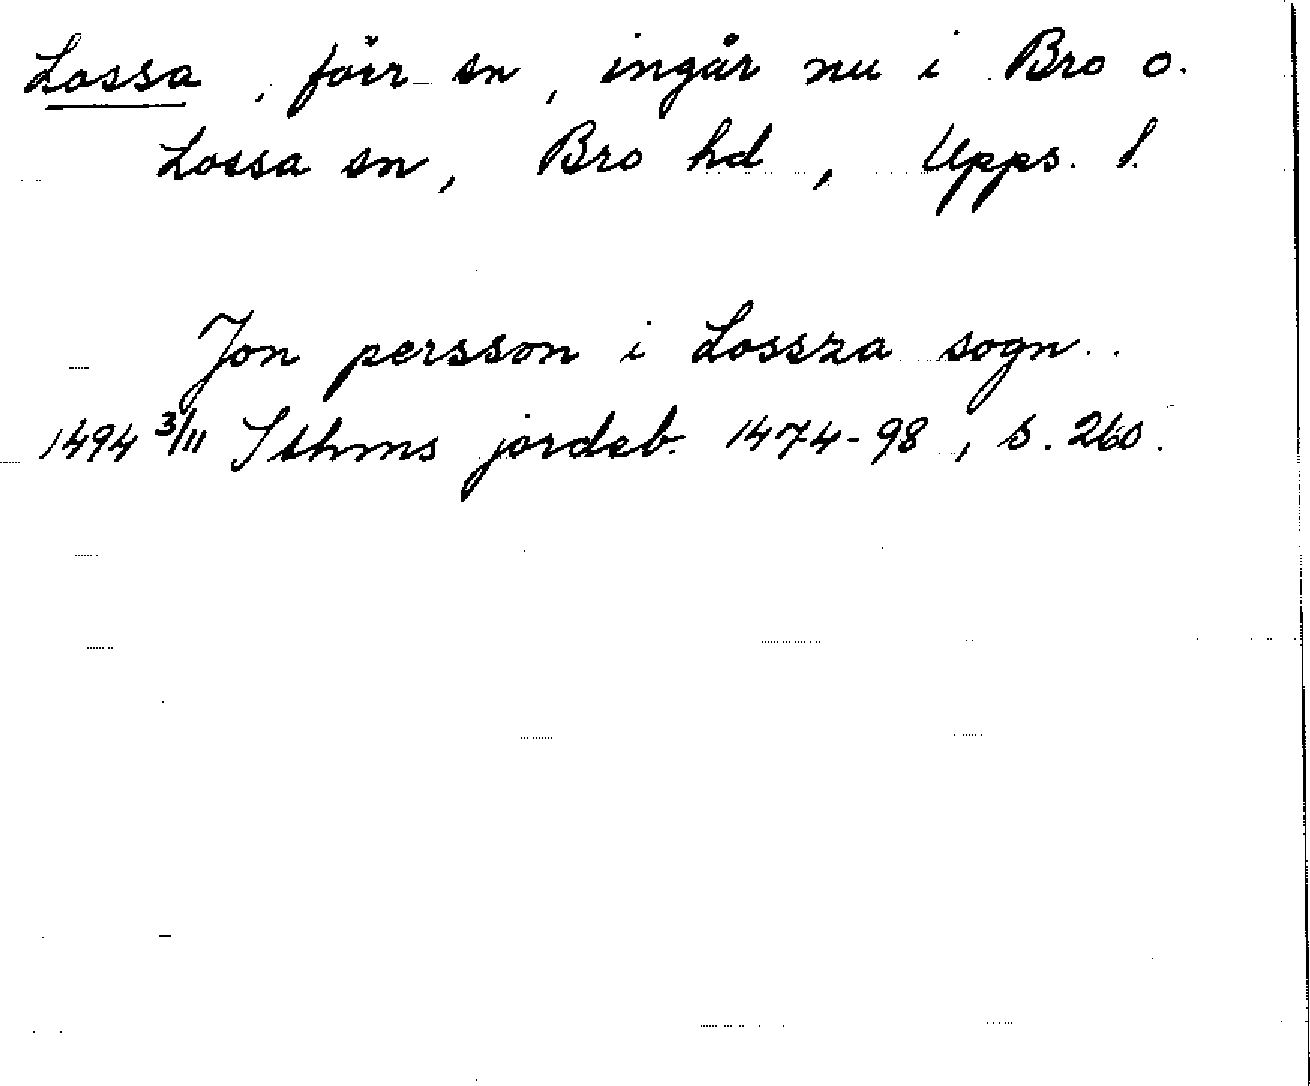 Lossa, förr sn, ingår nu i Bro o.
Lossa sn, Bro hd, Upps. l.
Jon persson i Lossza sogn..
1494 3/11 Sthms jordeb. 1474-98, s. 260.